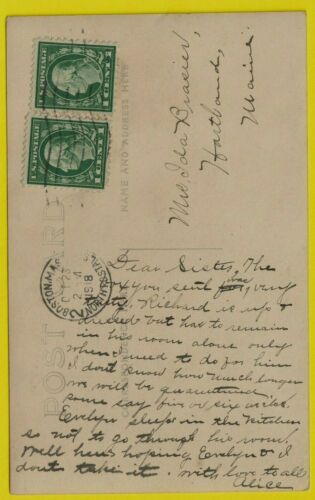 U.S. POSTAGE
1 CENT 1
U.S. POSTAGE
1 CENT 1
NAME AND ADDRESS HERE
POST CARD
BOSTON, MASS.
2 - M
1918
Mrs. Ida Brasier,
Hartland,
Maine
Dear Sister, The
you sent was very
Richard is up &
dressed but has to remain
in his room alone only
when need to do for him
I dont know how much longer
we will be quarantined
some say five or six wiks.
Evelyn sleeps in the Kitchen
so not to go through his room.
Well here hoping Evelyn & I
dont take it. with love to all
Alice